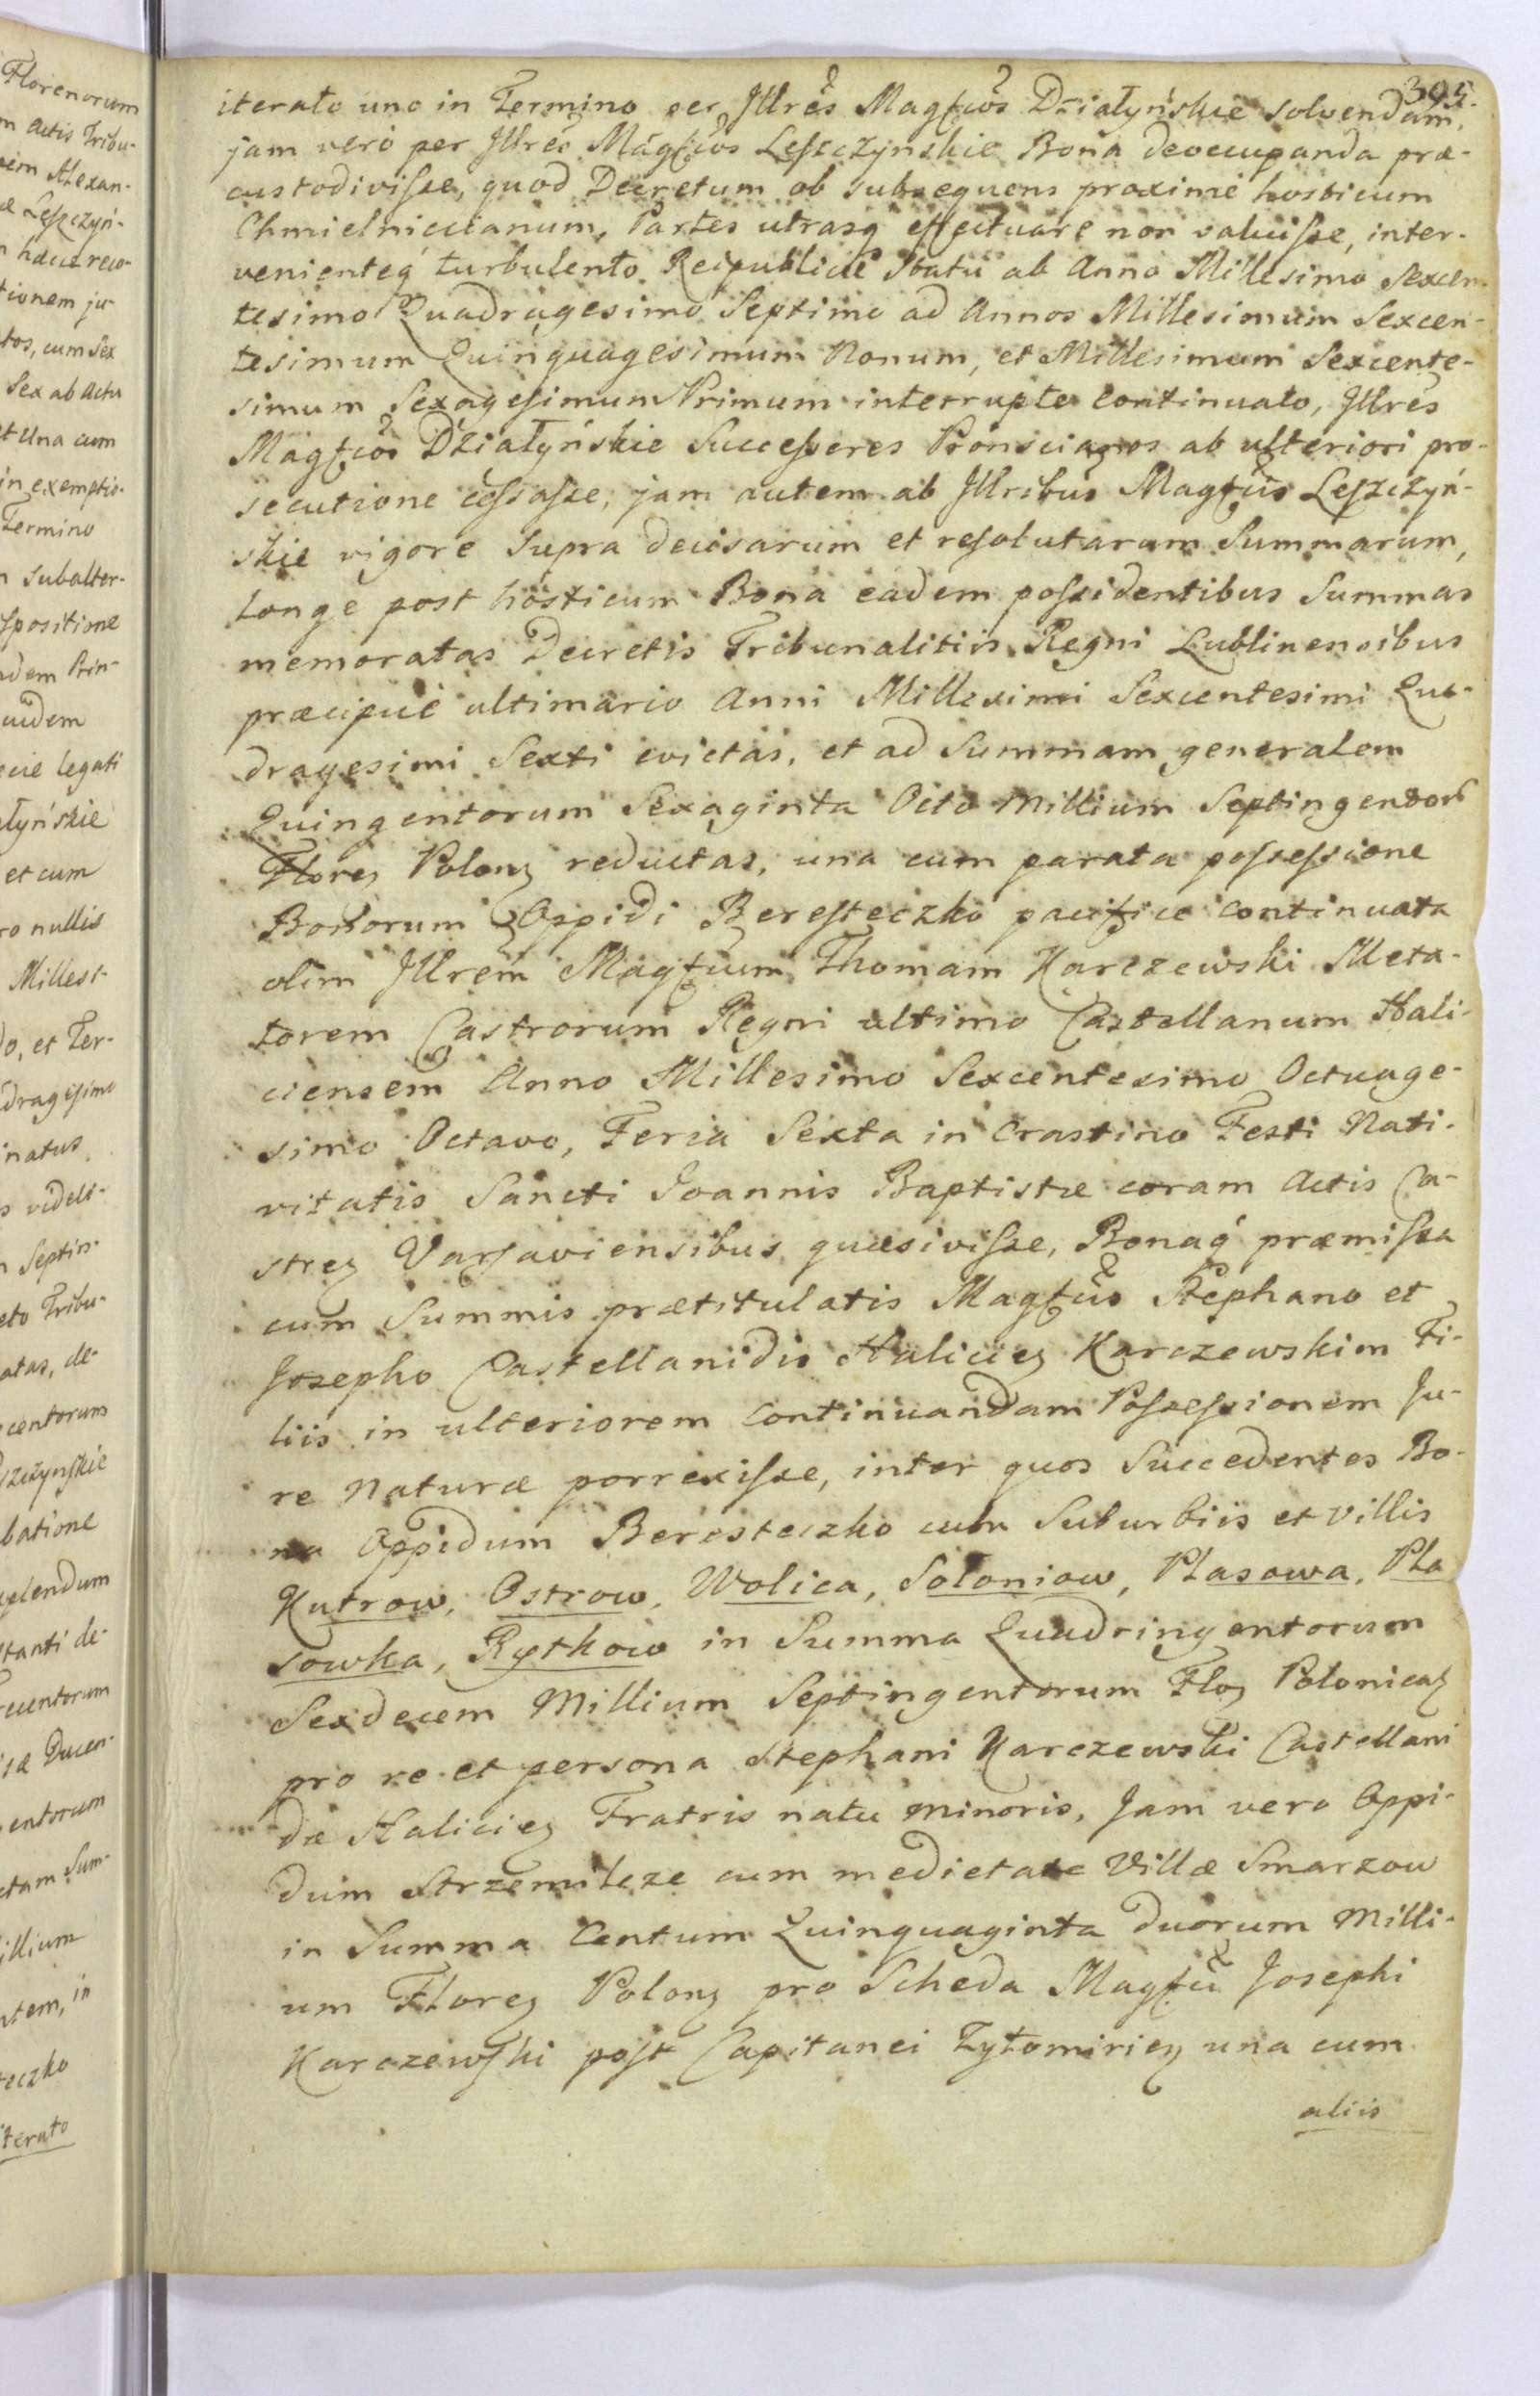 395.
iterato uno in Termino per Jllres Magfcos Działyńskie solvendam,
jam vero per Jllres Magfcos Leszczynskie Bona deoccupanda præ-
custodivisse, quod Decretum ob subsequens proxime hosticum
Chmielniccianum, Partes utrasq effectuare non valuisse, inter-
venienteq turbulento Reipublicæ Statu ab Anno Millesimo Sexcen-
tesimo Quadragesimo Septimo ad Annos Millesimum Sexcen-
tesimum Quinquagesimum Nonum, et Millesimum Sexcente-
simum Sexagesimum Primum interrupte continuato, Jllres
Magfcos Działyńskie Successores Pronscianos ab ulteriori pro-
secutione cessasse, jam autem ab Jllribus Magfcis Leszczyń-
skie vigore Supra decisarum et resolutarum Summarum,
Longe post hosticum Bona eadem possidentibus Summas
memoratas Decretis Tribunalitiis Regni Lublinensibus
præcipue ultimario Anni Millesimi Sexcentesimi Qua-
dragesimi Sexti evictas, et ad Summam generalem
Quingentorum Sexaginta Octo Millium Septingentor
Florez Polonz reductas, una cum parata possessione
Bonorum Oppidi Beresteczko pacifice continuata
olim Jllrem Magfcum Thomam Karczewski Meta-
torem Castrorum Regni ultimo Castellanum Hali-
ciensem Anno Millesimo Sexcentesimo Octuage-
simo Octavo, Feria Sexta in Crastino Festi Nati-
vitatis Sancti Joannis Baptistæ coram Actis Ca-
strez Varsaviensibus quæsivisse, Bonaq præmissa
cum Summis prætitulatis Magfcis Stephano et
Josepho Castellanidis Haliciez Karczewskim Fi-
liis in ulteriorem continuandam Possessionem Ju-
re Naturæ porrexisse, inter quos Succedentes Bo-
na Oppidum Beresteczko cum Suburbiis et villis
Kutrow, Ostrow, Wolica, Sołoniow, Płasowa, Pła
sowka, Rytkow in Summa Quadringentorum
Sexdecem Millium Septingentorum Floz Polonicaz
pro re et persona Stephani Karczewski Castellani
dæ Haliciez Fratris natu minoris, Jam vero Oppi-
dum Strzemilcze cum medietate Villæ Smarzow
in Summa Centum Quinquaginta duorum Milli-
um Florez Polonz pro Scheda Magfci Josephi
Karczewski post Capitanei Zytomiriez una cum
aliis